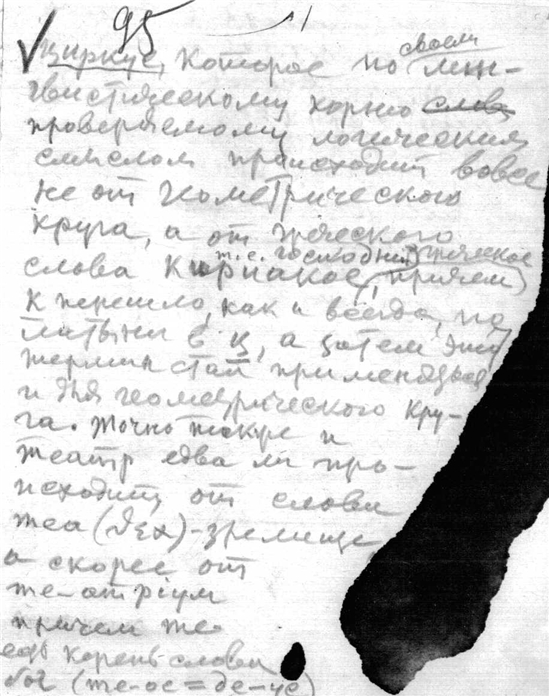 95
✓ циркус, которое по своему лин-
гвистическому корню ~~слова~~
проверяемому логическим
смыслом происходит вовсе
не от геометрического
круга, а от греческого
слова Кириакос, т.е. господний, причем греческое
К перешло, как и всегда, по
латыни в ц, а затем этот
термин стал применяться
и для геометрического кру-
га. Точно также и
театр едва ли про-
исходит от слова
теа (θεα) - зрелище
а скорее от
те-атриум
причем те
есть корень слова
бог (те-ос = де-ус)